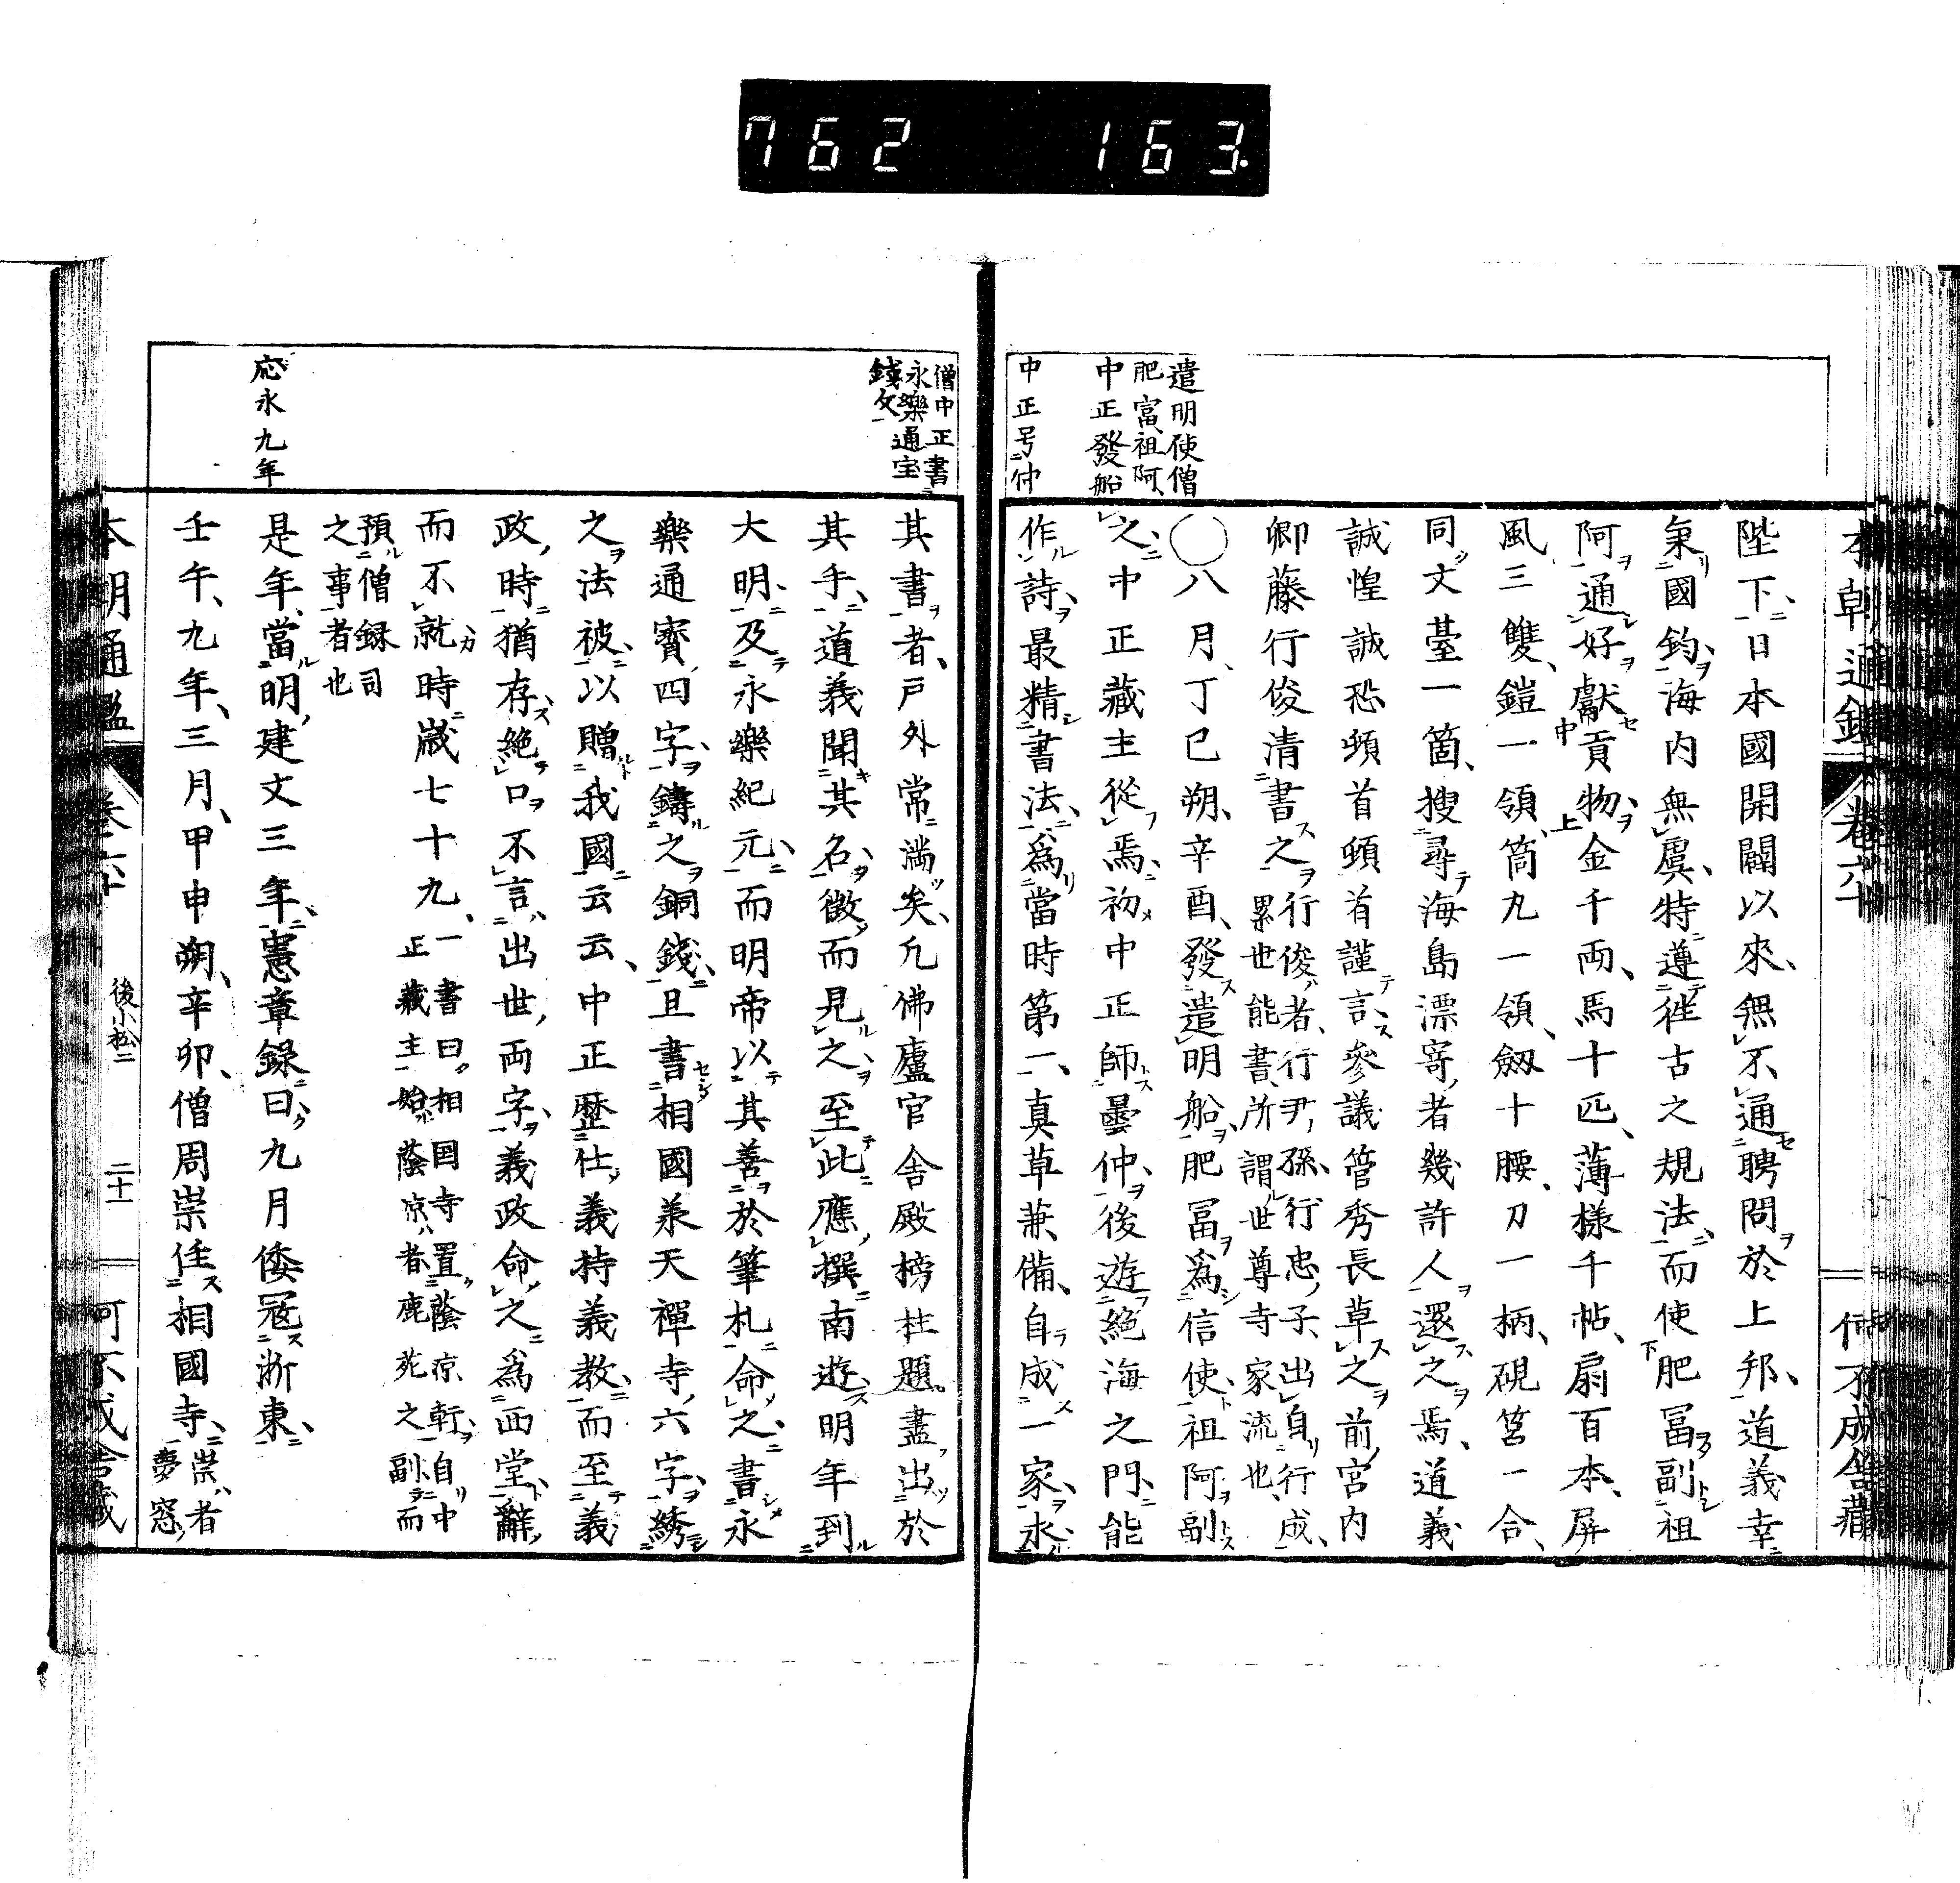 762 163
遣明使僧
肥富、祖阿、
中正發船
中正号仲
本朝通鑑 卷六十 何不成舎藏
陛下、日本國開闢以來、無不通聘問於上邦、道義幸
秉國鈞、海内無虞、特遵徃古之規法、而使肥冨副祖
阿通好獻貢物、金千両、馬十匹、薄樣千帖、扇百本、屏
風三雙、鎧一領、筒丸一領、劔十腰、刀一柄、硯筥一合、
同文臺一箇、搜尋海島漂寄者幾許人還之焉、道義
誠惶誠恐頓首頓首謹言、參議菅秀長草之前、宮内
卿藤行俊清書之
行俊者、行尹孫、行忠子、出自行成、
累世能書、所謂世尊寺家流也、
○八月、丁巳朔、辛酉、發遣明船、肥冨爲信使、祖阿副
之、中正藏主從焉、初中正師曇仲、後遊絶海之門、能
作詩、最精書法、爲當時第一、真草兼備、自成一家、求
僧中正書
永樂通宝
錢文
応永九年
其書者、戸外常満矣、凢佛廬官舎殿榜柱題盡出於
其手、道義聞其名、徴而見之、至此應撰南遊、明年到
大明、及永樂紀元、而明帝以其善於筆札、命之書永
樂通寳四字、鑄之銅錢、且書相國兼天禪寺六字、綉
之法被、以贈我國云云、中正歷仕義持義教、而至義
政時猶存、絶口不言出世両字、義政命之爲西堂、辭
而不就、時歳七十九、
一書曰、相国寺置蔭凉軒、自中
正藏主始、蔭凉者、鹿苑之副、而
預僧録司
之事者也
是年、當明建文三年、憲章錄曰、九月倭寇浙東、
壬午、九年、三月、甲申朔、辛卯、僧周崇住相國寺、
崇者
夢窓
本朝通鑑 卷六十 後小松二 二十一 何不成舎藏